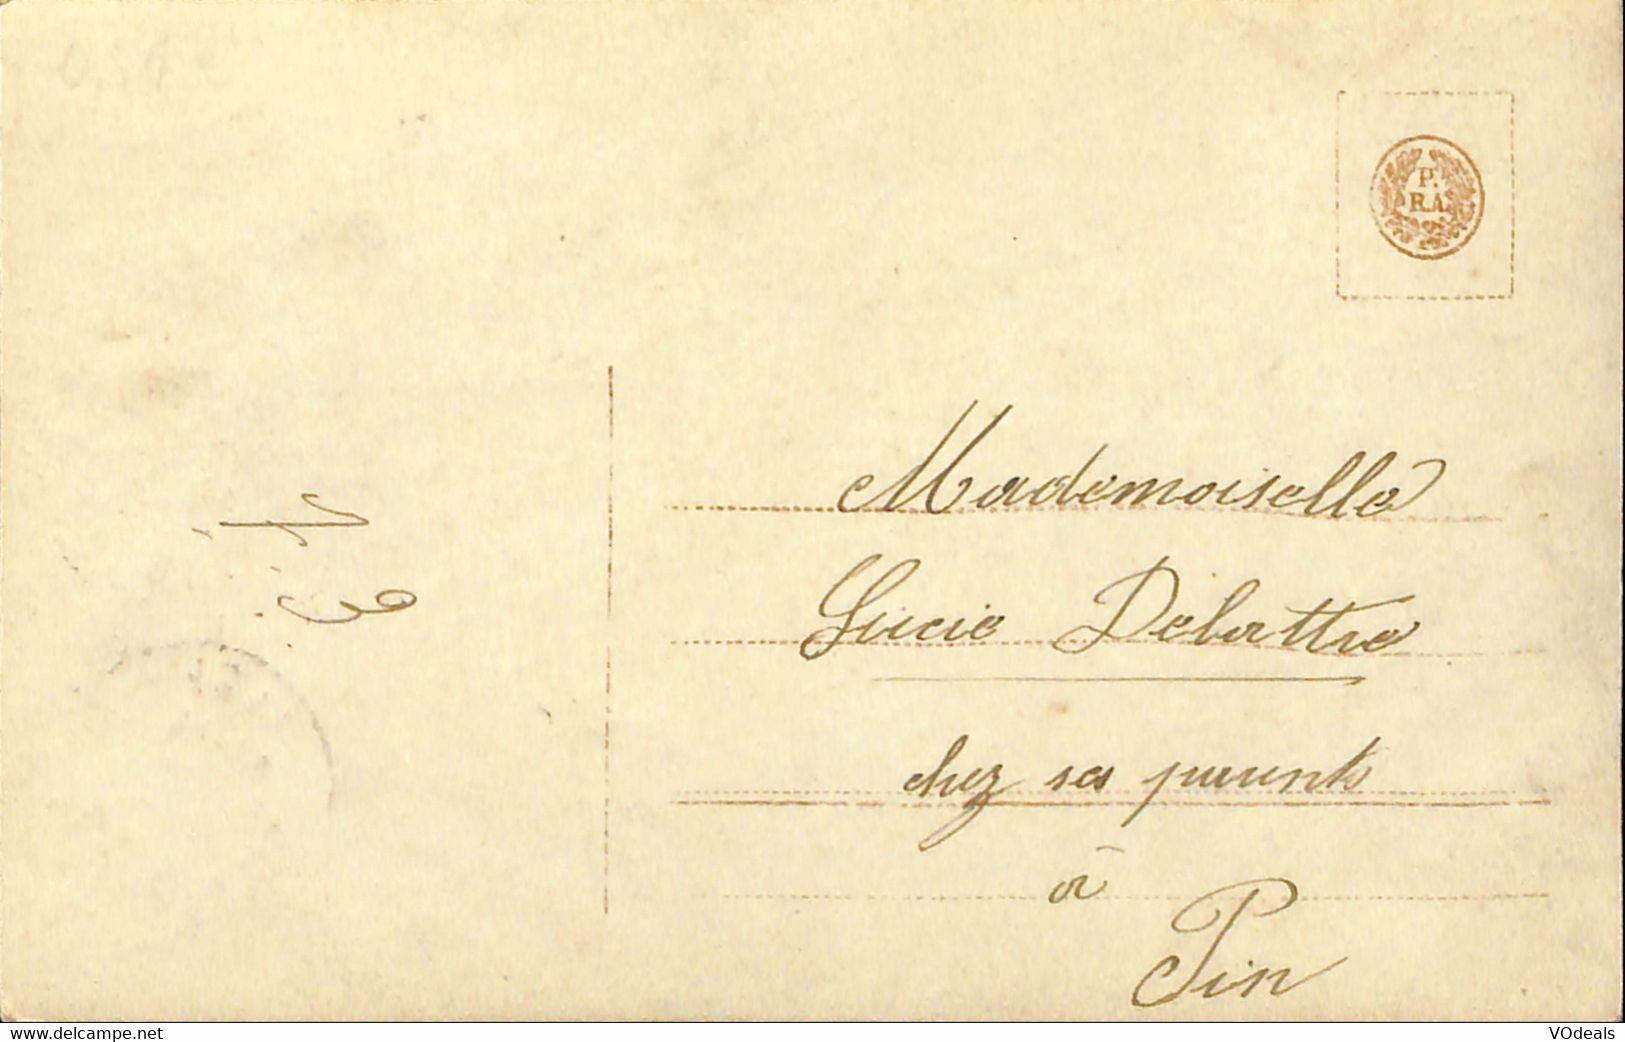 P.
R.A.
Mademoiselle
Lucie Delattre
chez ses parents
à
Pin
www.delcampe.net
VOdeals